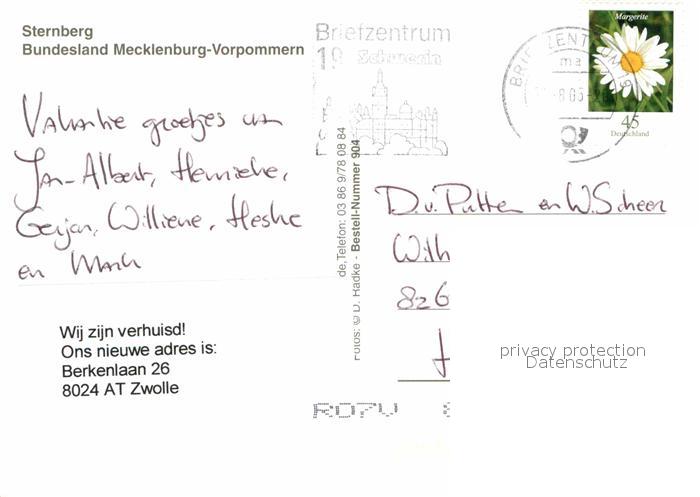 Sternberg
Bundesland Mecklenburg-Vorpommern
Vakantie groetjes van
Jan-Albert, Hennieke,
Gerjan, Williene, Heske
en Mark
Wij zijn verhuisd!
Ons nieuwe adres is:
Berkenlaan 26
8024 AT Zwolle
de,Telefon: 03 86 9/78 08 84
Fotos: © D. Radke - Bestell-Nummer 904
Briefzentrum
19 Schwerin
BRIEFZENTRUM 19
ma
Margerite
45
Deutschland
D. v. Putten en W. Scheer
Wilh
826
privacy protection
Datenschutz